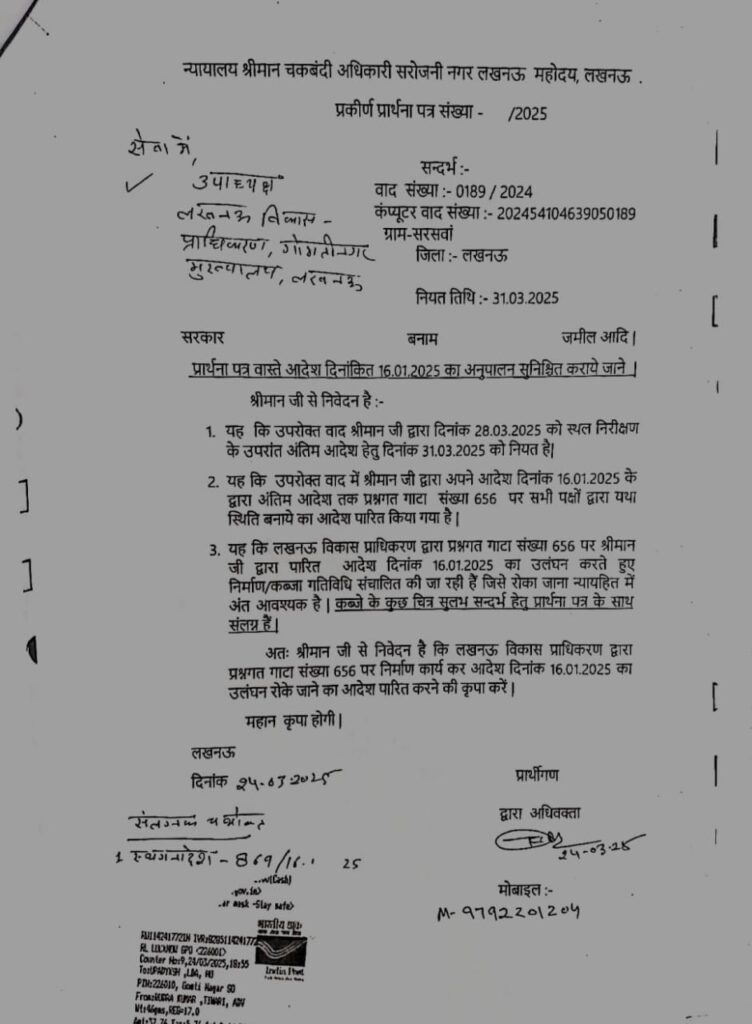 न्यायालय श्रीमान चकबंदी अधिकारी सरोजनी नगर लखनऊ महोदय, लखनऊ .
प्रकीर्ण प्रार्थना पत्र संख्या - /2025
सेवा में,
✓ उपाध्यक्ष
लखनऊ विकास -
प्राधिकरण, गोमतीनगर
मुख्यालय, लखनऊ
सन्दर्भ :-
वाद संख्या :- 0189 / 2024
कंप्यूटर वाद संख्या :- 202454104639050189
ग्राम-सरसवां
जिला :- लखनऊ
नियत तिथि :- 31.03.2025
सरकार बनाम जमील आदि |
प्रार्थना पत्र वास्ते आदेश दिनांकित 16.01.2025 का अनुपालन सुनिश्चित कराये जाने |
श्रीमान जी से निवेदन है :-
1. यह कि उपरोक्त वाद श्रीमान जी द्वारा दिनांक 28.03.2025 को स्थल निरीक्षण
के उपरांत अंतिम आदेश हेतु दिनांक 31.03.2025 को नियत है|
2. यह कि उपरोक्त वाद में श्रीमान जी द्वारा अपने आदेश दिनांक 16.01.2025 के
द्वारा अंतिम आदेश तक प्रश्नगत गाटा संख्या 656 पर सभी पक्षों द्वारा यथा
स्थिति बनाये का आदेश पारित किया गया है |
3. यह कि लखनऊ विकास प्राधिकरण द्वारा प्रश्नगत गाटा संख्या 656 पर श्रीमान
जी द्वारा पारित आदेश दिनांक 16.01.2025 का उलंघन करते हुए
निर्माण/कब्जा गतिविधि संचालित की जा रही हैं जिसे रोका जाना न्यायहित में
अंत आवश्यक है | कब्जे के कुछ चित्र सुलभ सन्दर्भ हेतु प्रार्थना पत्र के साथ
संलग्न हैं |
अतः श्रीमान जी से निवेदन है कि लखनऊ विकास प्राधिकरण द्वारा
प्रश्नगत गाटा संख्या 656 पर निर्माण कार्य कर आदेश दिनांक 16.01.2025 का
उलंघन रोके जाने का आदेश पारित करने की कृपा करें |
महान कृपा होगी |
लखनऊ
दिनांक 24-03-2025
प्रार्थीगण
द्वारा अधिवक्ता
24-03-25
संलग्नक
1 स्थगनादेश - 869/16. 25
मोबाइल :-
M- 9792201204
(Cash)
.gov.in>
ar mask -Stay safe>
भारतीय डाक
India Post
RL LUCKNOW GPO <226001>
Counter No:9,24/03/2025,18:55
To:UPADYKSH ,LDA, HU
PIN:226010, Gomti Nagar SO
From:RUDRA KUMAR ,TIWARI, ADV
Wt:46gms,REG=17.0